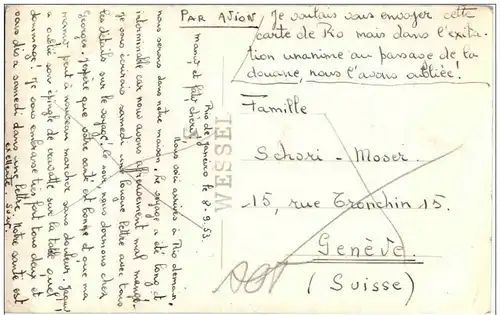 PAR AVION
Je voulais vous envoyer cette
carte de Rio mais dans l'exita-
tion unanime au passage de la
douane, nous l'avons oubliée!
Famille
Schori - Moser
15, rue Tronchin 15.
Genève
(Suisse)
WESSEL
Rio de Janeiro le 8.9.53
mamy et
Nous voici arrivés à Rio demain,
nous serons dans notre maison. Le voyage a été long et
interminable car nous avons affreusement mal mangé.
Je vous écrirai samedi une longue lettre avec tous
les détails sur le voyage! Ce soir, nous dormons chez
Georges. J'espère que votre santé est bonne et que ma
mamy peut à nouveau marcher sans douleur.
a oublié son épingle de cravatte sur la table quel
dommage! Je vous embrasse très fort tous deux et
vous dis à samedi dans une lettre. Notre santé est